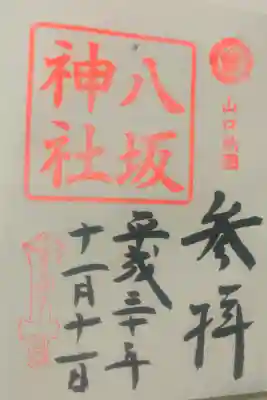 山口祇園
参拝
八坂
神社
平成三十年
十一月十一日